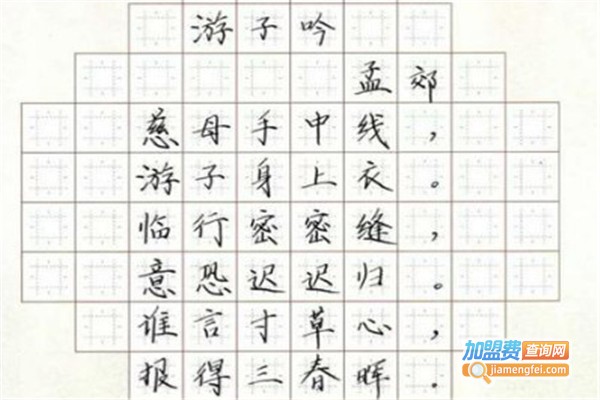 游子吟
孟郊
慈母手中线，
游子身上衣。
临行密密缝，
意恐迟迟归。
谁言寸草心，
报得三春晖.
加盟费查询网
jiamengfei.com